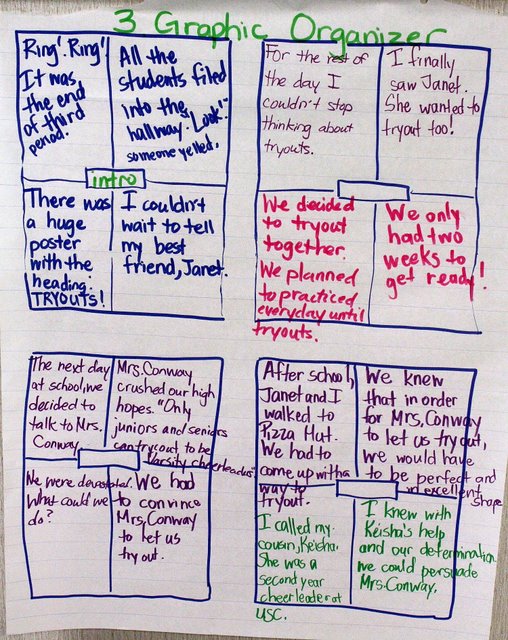 3 Graphic Organizer
Ring! Ring!
It was
the end
of third
period.
All the
students filed
into the
hallway. "Look!"
someone yelled.
intro
There was
a huge
poster
with the
heading:
TRYOUTS!
I couldn't
wait to tell
my best
friend, Janet.
For the rest of
the day I
couldn't stop
thinking about
tryouts.
I finally
saw Janet.
She wanted to
tryout too!
We decided
to tryout
together.
We planned
to practiced
everyday until
tryouts.
We only
had two
weeks to
get ready!
The next day
at school, we
decided to
talk to Mrs.
Conway.
Mrs. Conway
crushed our high
hopes. "Only
juniors and seniors
can tryout to be
Varsity cheerleaders"
We were devastated.
What could we
do?
We had
to convince
Mrs. Conway
to let us
try out.
After school,
Janet and I
walked to
Pizza Hut.
We had to
come up with a
way to
tryout.
We knew
that in order
for Mrs. Conway
to let us try out,
we would have
to be perfect and
in excellent
shape
I called my
cousin, Keisha.
She was a
second year
cheerleader at
USC.
I knew with
Keisha's help
and our determination
we could persuade
Mrs. Conway.